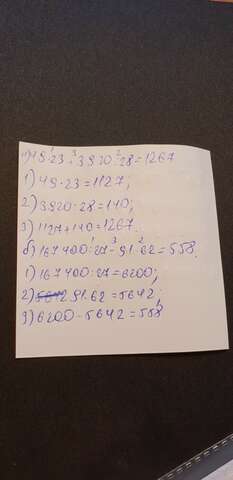 а) 49·23+3920:28=1267
1) 49·23=1127;
2) 3920:28=140;
3) 1127+140=1267.
б) 167400:27-91·62=558.
1) 167400:27=6200;
2) 91·62=5642;
3) 6200-5642=558